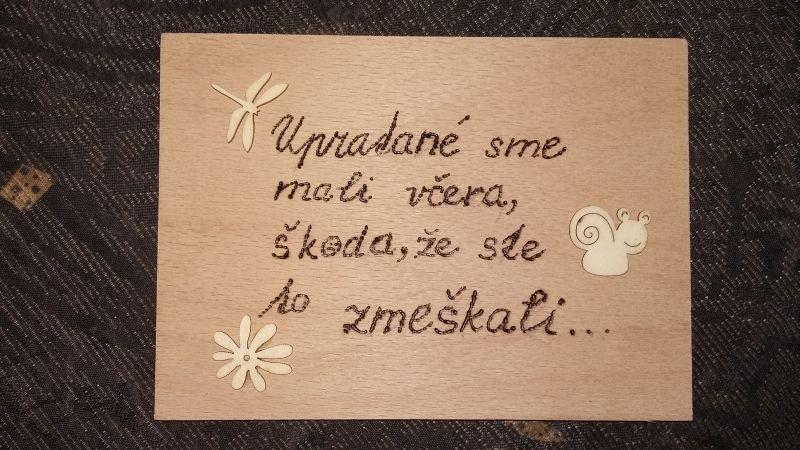 Upratané sme
mali včera,
škoda, že ste
to zmeškali...